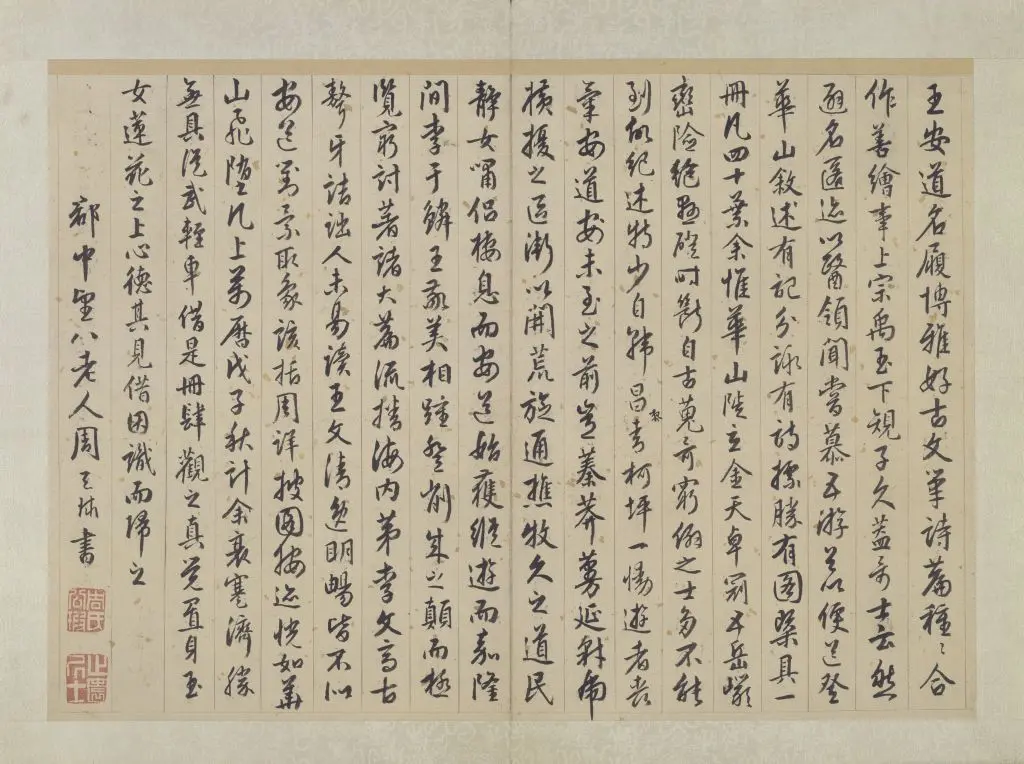 王安道名履博雅好古文筆詩篇種々合
作善繪事上宗禹玉下規子久蓋奇士云然
避名匿迹以醫領聞嘗慕五游便道登
華山敘述有記分詠有詩摽勝有圖槩具一
冊凡四十葉余惟華山陡立金天卓冠五岳巉
巒險絕懸磴時斷自古蒐奇窮之士多不能
到紀述特少自韓昌黎青柯坪一慟遊者喪
氣安道安未至之前蓁莽蔓延豺虎
橫擾之區漸以開荒旋通樵牧久之道民
靜女嘯侶棲息而安道始獲縱遊而嘉隆
間李于鱗王敬美相踵登削成之顛而極
覽窮討著諸大篇流播海內第李文高古
聱牙詰詘人未易讀王文清逸明暢皆不似
安道對景取象該括周詳披圖按迹恍如華
山飛墮几上萬曆戊子秋計余衰蹇濟勝
無具從武輕車借是冊肆觀之真覺置身玉
女蓮花之上心德其見借因識而歸之
中望八老人周書